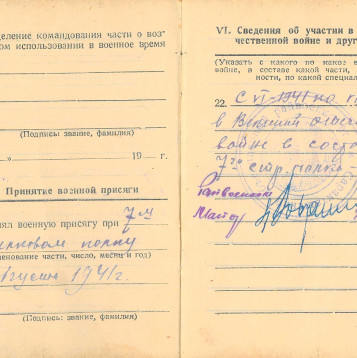 деление командования части о воз-
ом использовании в военное время
(Подписы звание, фамилия)
19 — г.
Принятие военной присяги
ял военную присягу при 7 м
полку
нование части, число, месяц и год)
августа 1941г.
(Подпись: звание, фамилия)
VI. Сведения об участии в
чественной войне и друг
(Указать с какого по какое
войне, в составе какой части,
ности, по какой специал
22. С VI-1941 по
в Великой отеч
войне в сост
7го стр. полка
Райвоенком
Майор